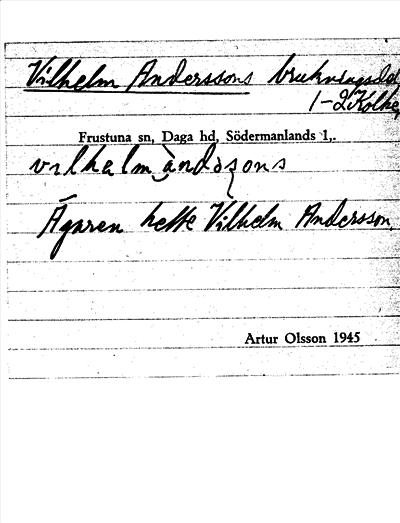 Vilhelm Anderssons brukningsdel
1-2 Kolke
Frustuna sn, Daga hd, Södermanlands l,.
vɪlhelm àndəʂons
Ägaren hette Vilhelm Andersson.
Artur Olsson 1945